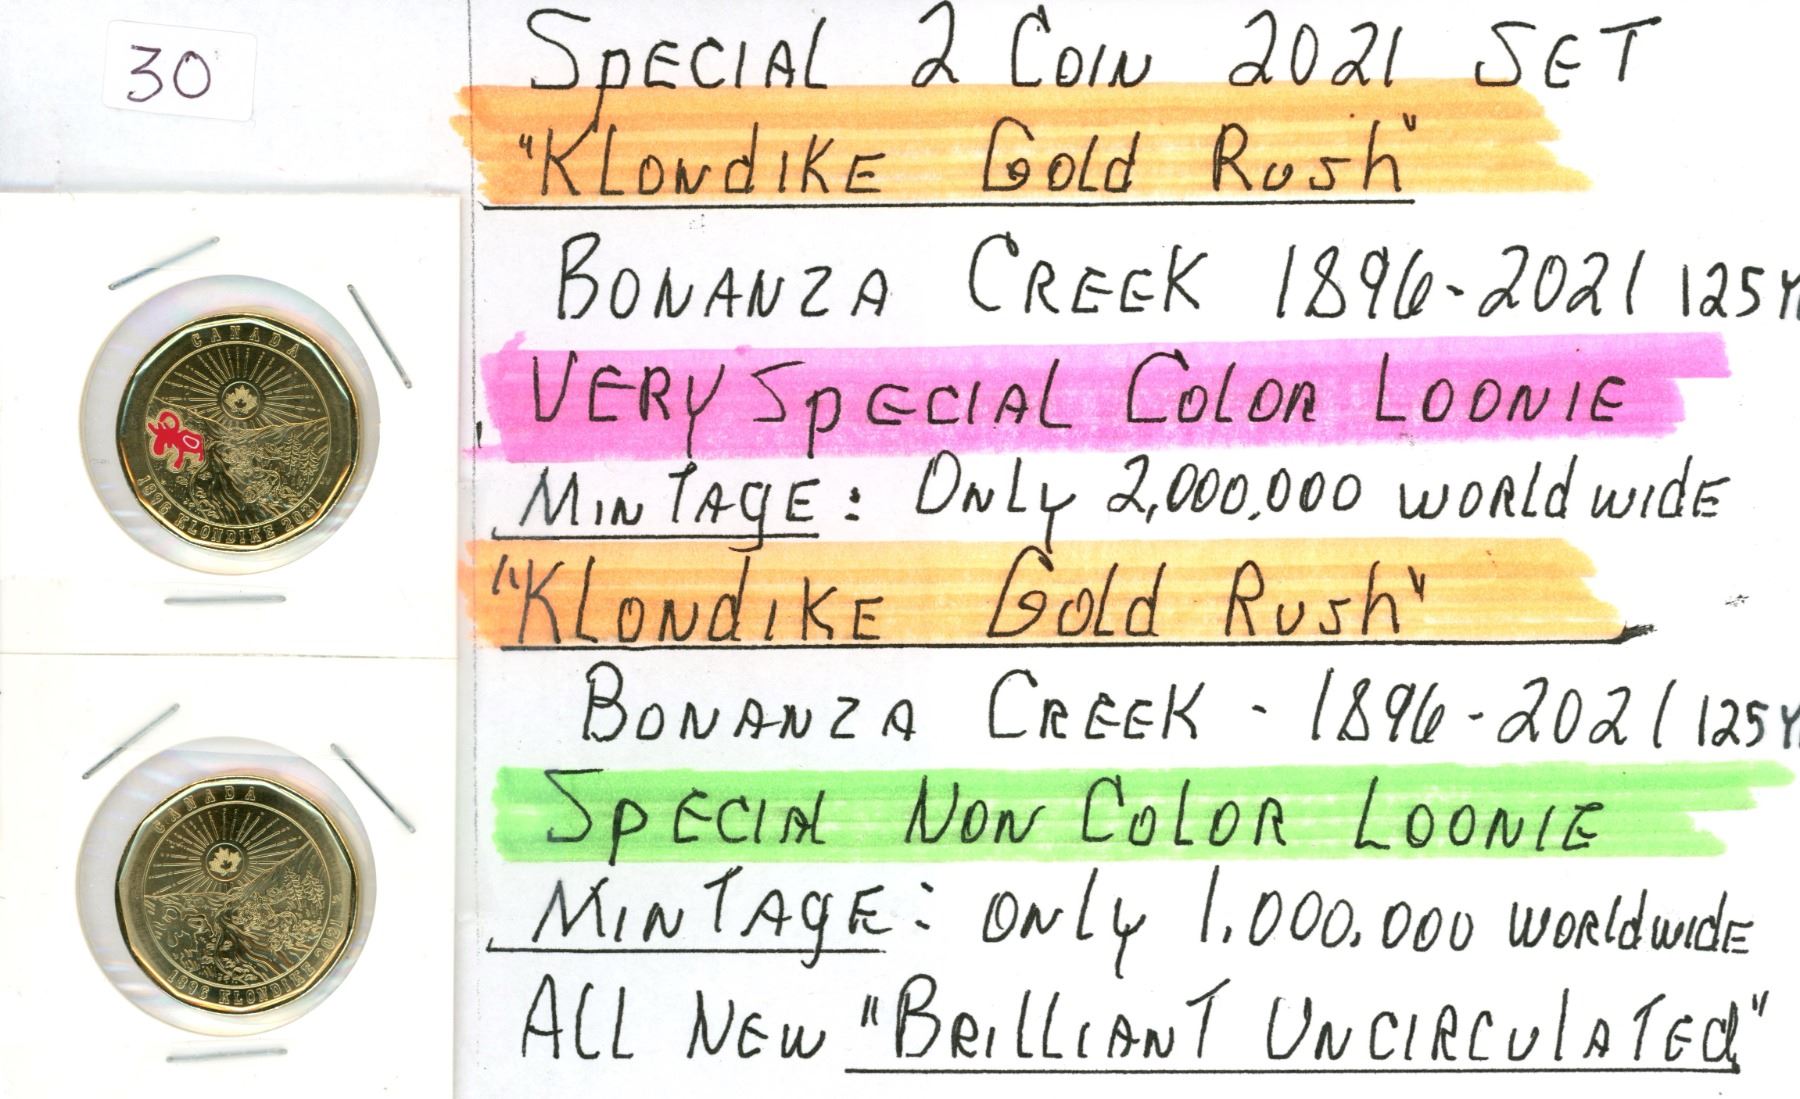 30
SPECIAL 2 COIN 2021 SET
"KLONDIKE GOLD RUSH"
BONANZA CREEK 1896-2021 125 Y
VERY SPECIAL COLOR LOONIE
MINTAGE: ONLY 2,000,000 WORLDWIDE
"KLONDIKE GOLD RUSH"
BONANZA CREEK - 1896-2021 125 Y
SPECIAL NON COLOR LOONIE
MINTAGE: ONLY 1,000,000 WORLDWIDE
ALL NEW "BRILLIANT UNCIRCULATED"
CANADA
1896 KLONDIKE 2021
CANADA
1896 KLONDIKE 2021